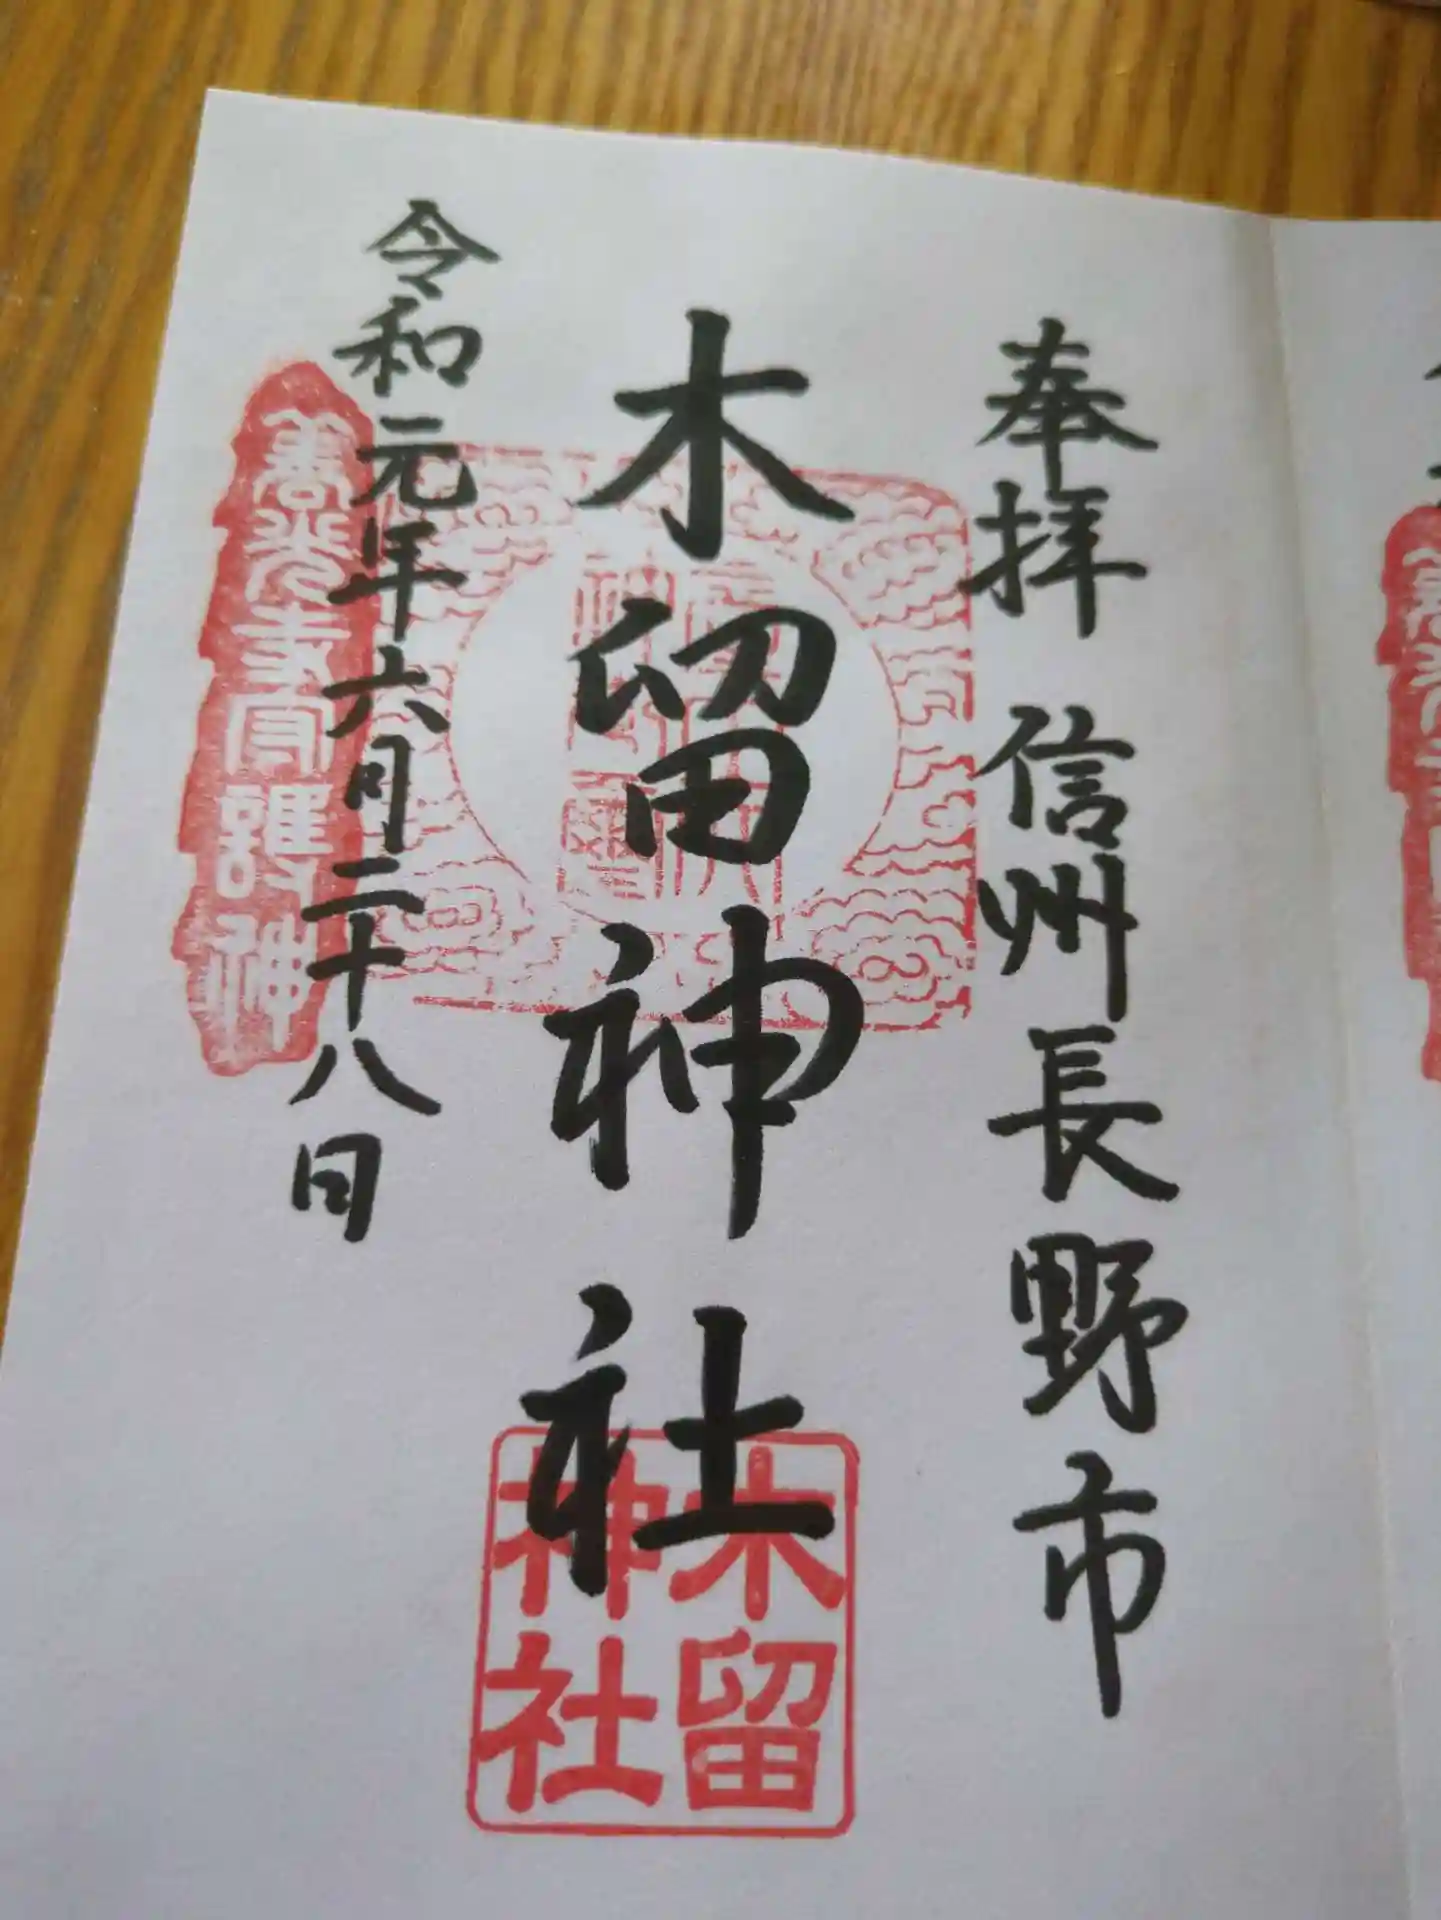 奉拝 信州長野市
木留神社
令和元年六月二十八日
善光寺守護神
木留
神社